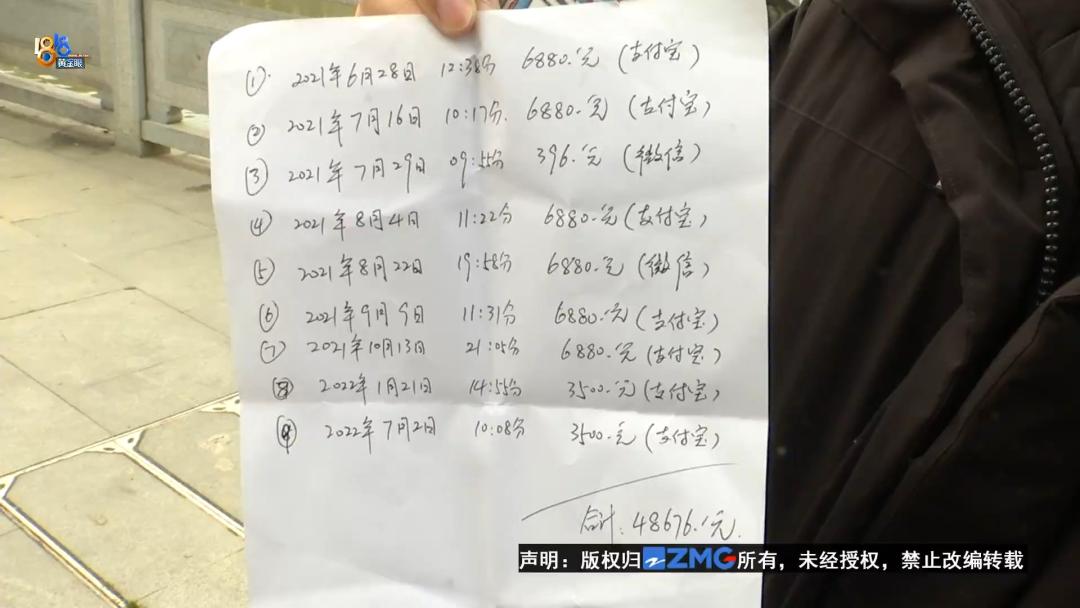 1818
黄金眼
① 2021年6月28日 12:38分 6880.元 (支付宝)
② 2021年7月16日 10:17分. 6880.元 (支付宝)
③ 2021年7月29日 09:55分 396.元 (微信)
④ 2021年8月4日 11:22分 6880.元 (支付宝)
⑤ 2021年8月22日 19:58分 6880.元 (微信)
⑥ 2021年9月9日 11:31分 6880.元 (支付宝)
⑦ 2021年10月13日 21:05分 6880.元 (支付宝)
⑧ 2022年1月21日 14:55分 3500.元 (支付宝)
⑨ 2022年7月2日 10:08分 3500.元 (支付宝)
合计: 48676.元.
声明：版权归ZMG所有，未经授权，禁止改编转载